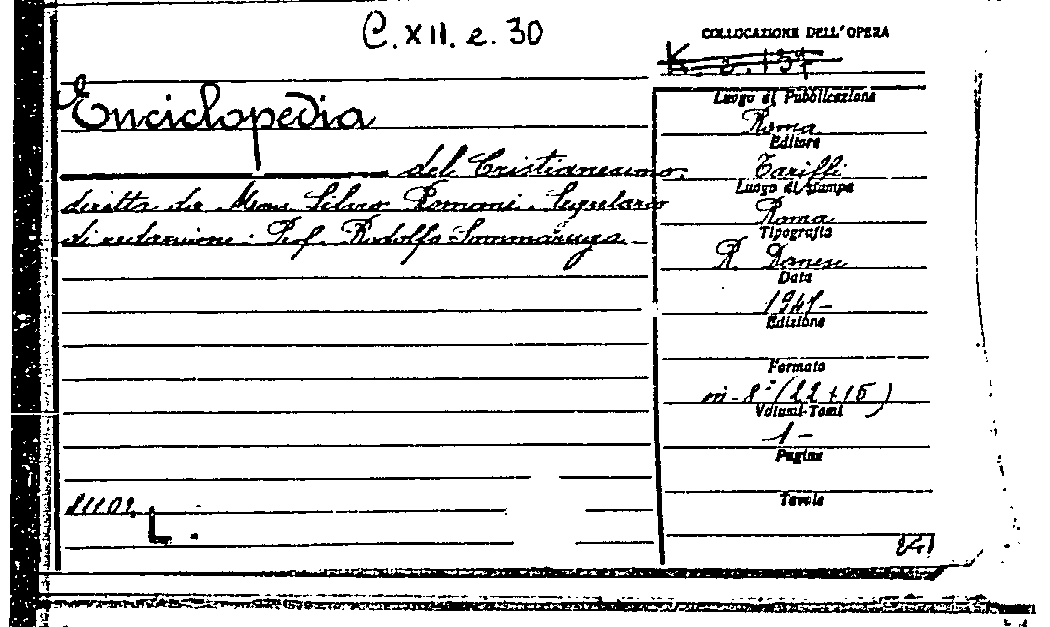 C. XII. e. 30
COLLOCAZIONE DELL'OPERA
Enciclopedia
del Cristianesimo,
diretta da Mons. Silvio Romani. Segretario
di redazione: Prof. Rodolfo Sommaruga
Luogo di Pubblicazione
Roma
Editore
Tariffi
Luogo di Stampa
Roma
Tipografia
R. Danesi
Data
Edizione
Formato
in-8° (22+15)
Volumi-Tomi
1 -
Pagine
Tavole
L.